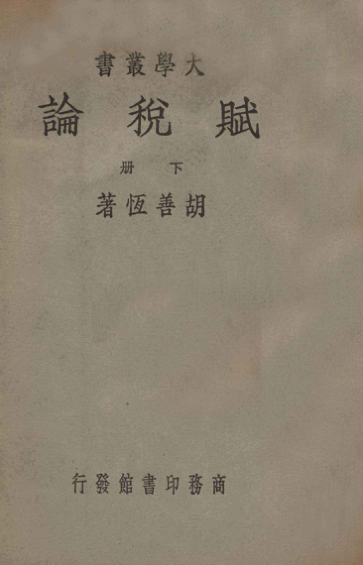 大學叢書
賦稅論
下冊
胡善恆著
商務印書館發行